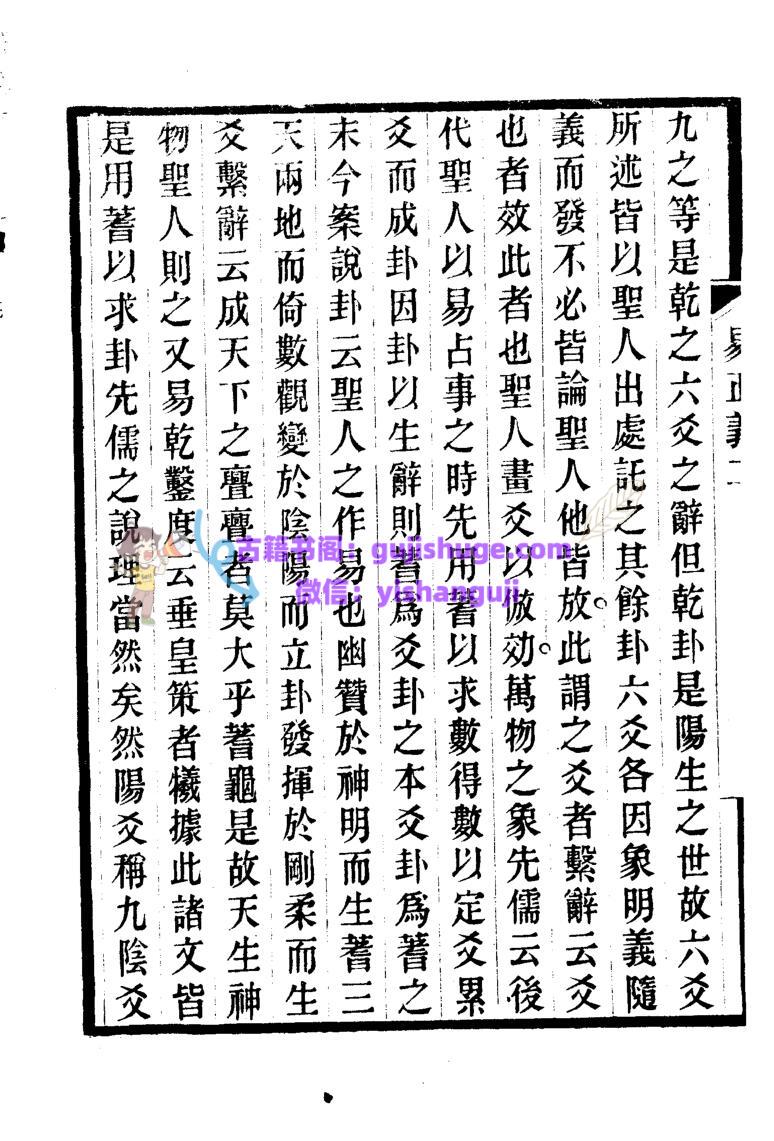 九之等是乾之六爻之辭但乾卦是陽生之世故六爻
所述皆以聖人出處託之其餘卦六爻各因象明義隨
義而發不必皆論聖人他皆放此謂之爻者繫辭云爻
也者效此者也聖人畫爻以倣効萬物之象先儒云後
代聖人以易占事之時先用蓍以求數得數以定爻累
爻而成卦因卦以生辭則蓍為爻卦之本爻卦為蓍之
末今案說卦云聖人之作易也幽贊於神明而生蓍三
天兩地而倚數觀變於陰陽而立卦發揮於剛柔而生
爻繫辭云成天下之亹亹者莫大乎蓍龜是故天生神
物聖人則之又易乾鑿度云垂皇策者犧據此諸文皆
是用蓍以求卦先儒之說理當然矣然陽爻稱九陰爻
易正義二
古籍书阁：gujishuge.com
微信：yishanguji